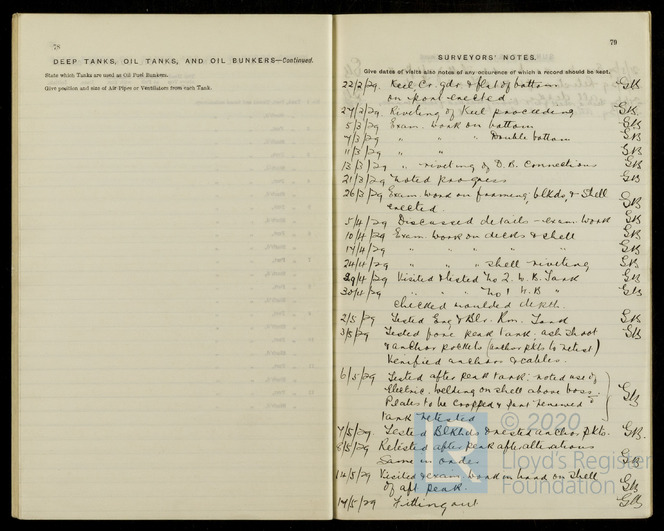 78
DEEP TANKS, OIL TANKS, AND OIL BUNKERS—Continued.
State which Tanks are used as Oil Fuel Bunkers.
Give position and size of Air Pipes or Ventilators from each Tank.
79
SURVEYORS' NOTES.
Give dates of visits also notes of any occurence of which a record should be kept.
22/2/29 Keel Cr. gdr & flat of bottom GB
on port erected
27/2/29 Riveting of Keel proceeding GB
5/3/29 Exam. work on bottom GB
7/3/29 " " " Double bottom GB
11/3/29 " " GB
13/3/29 " riveting of D.B. Connections GB
21/3/29 Noted progress GB
26/3/29 Exam work on framing, blkds, & shell GB
erected
5/4/29 Discussed details - exam. work GB
10/4/29 Exam. work on decks & shell GB
17/4/29 " " " " " GB
24/4/29 " " " shell riveting GB
29/4/29 Visited & tested No 2. W. B. Tank GB
30/4/29 " " " No 1 W.B " GB
Checked moulded depth.
2/5/29 Tested Eng & Blr. Rm. Tank GB
3/5/29 Tested fore peak tank. ash shoot GB
& anchor pockets (anchor pkts to retest)
Verified anchors & cables.
6/5/29 Tested after peak tank: noted use of
Electric welding on shell above boss.
Plates to be cropped & part renewed GB
tank retested
7/5/29 Tested Blkhds & retested anchor pkts. GB.
8/5/29 Retested after peak after alterations
Same in order GB
14/5/29 Visited & exam. work in hand on shell
of aft peak. GB
17/5/29 Fitting out GB
© 2020
Lloyd's Register
Foundation